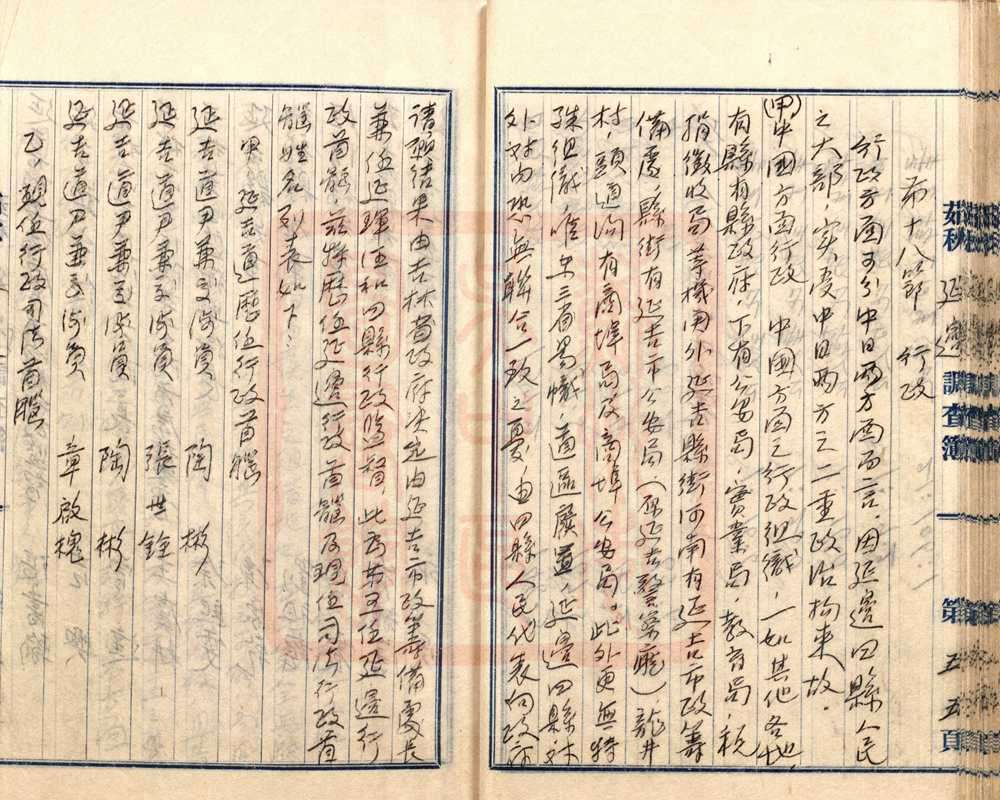 茹秋 延邊調查簿 第五五頁
第十八節 行政
行政方面可分中日兩方面而言，因延邊四縣人民
之大部，实受中日兩方之二重政治拘束故．
(甲)中國方面行政 中國方面之行政組織，一如其他各地，
有縣有縣政府，下有公安局，實業局，教育局，稅
捐徵收局等機関外延吉縣街河南有延吉市政籌
備處，縣街有延吉市公安局(原延吉警察廳)龍井
村，頭道溝有商埠局及商埠公安局。此外更無特
殊組織，唯東三省易幟，道區廢置，延邊四縣對
外對内恐無聯合一致之憂，由四縣人民代表向政府
請願結果由吉林省政府决定由延吉市政籌備處長
兼任延琿汪和四縣行政監督，此為第五任延邊行
政首腦，茲將歷任延邊行政首腦及現任司法行政首
腦姓名列表如下：
甲、延吉道之歷任行政首腦
延吉道尹兼交涉員 陶彬
延吉道尹兼交涉員 張世銓
延吉道尹兼交涉員 陶彬
延吉道尹兼交涉員 章啟槐
乙、現任行政司法首腦